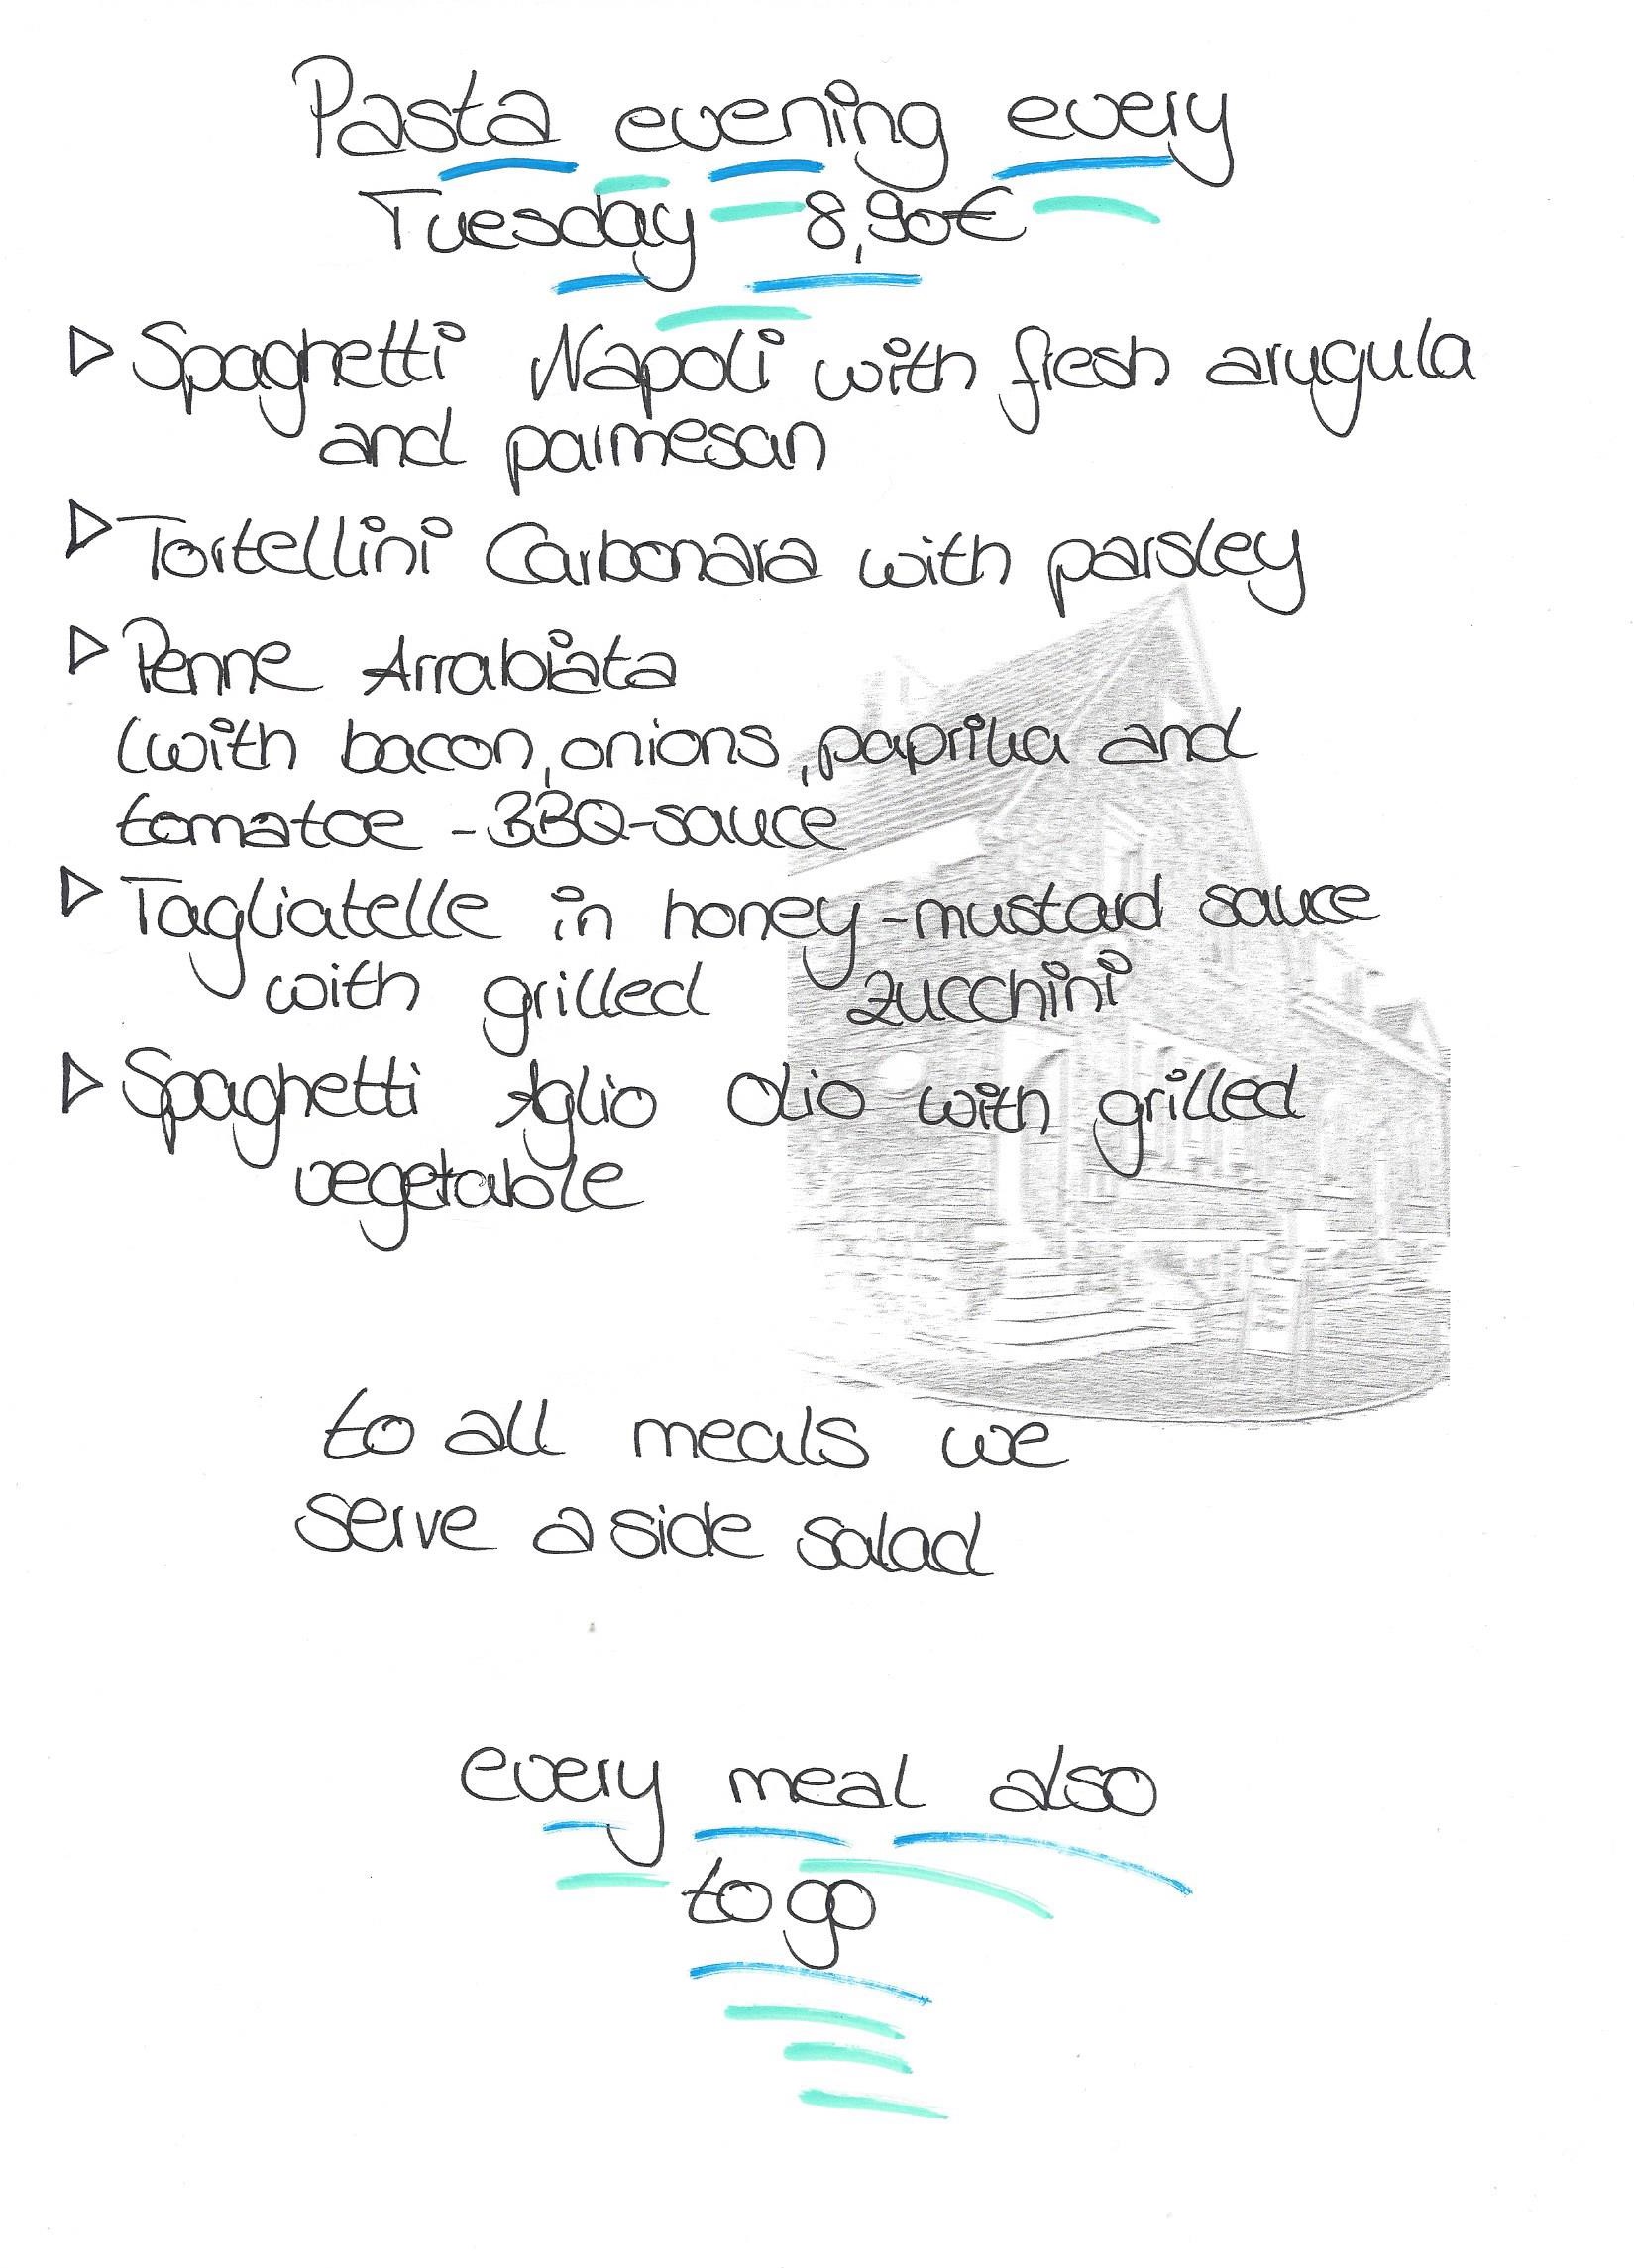 Pasta evening every
Tuesday 8,90€
▷ Spaghetti Napoli with fresh arugula
and parmesan
▷ Tortellini Carbonara with parsley
▷ Penne Arrabiata
(with bacon, onions, paprika and
tomatoe - BBQ-sauce
▷ Tagliatelle in honey-mustard sauce
with grilled zucchini
▷ Spaghetti Aglio Olio with grilled
vegetable
to all meals we
serve a side salad
every meal also
to go